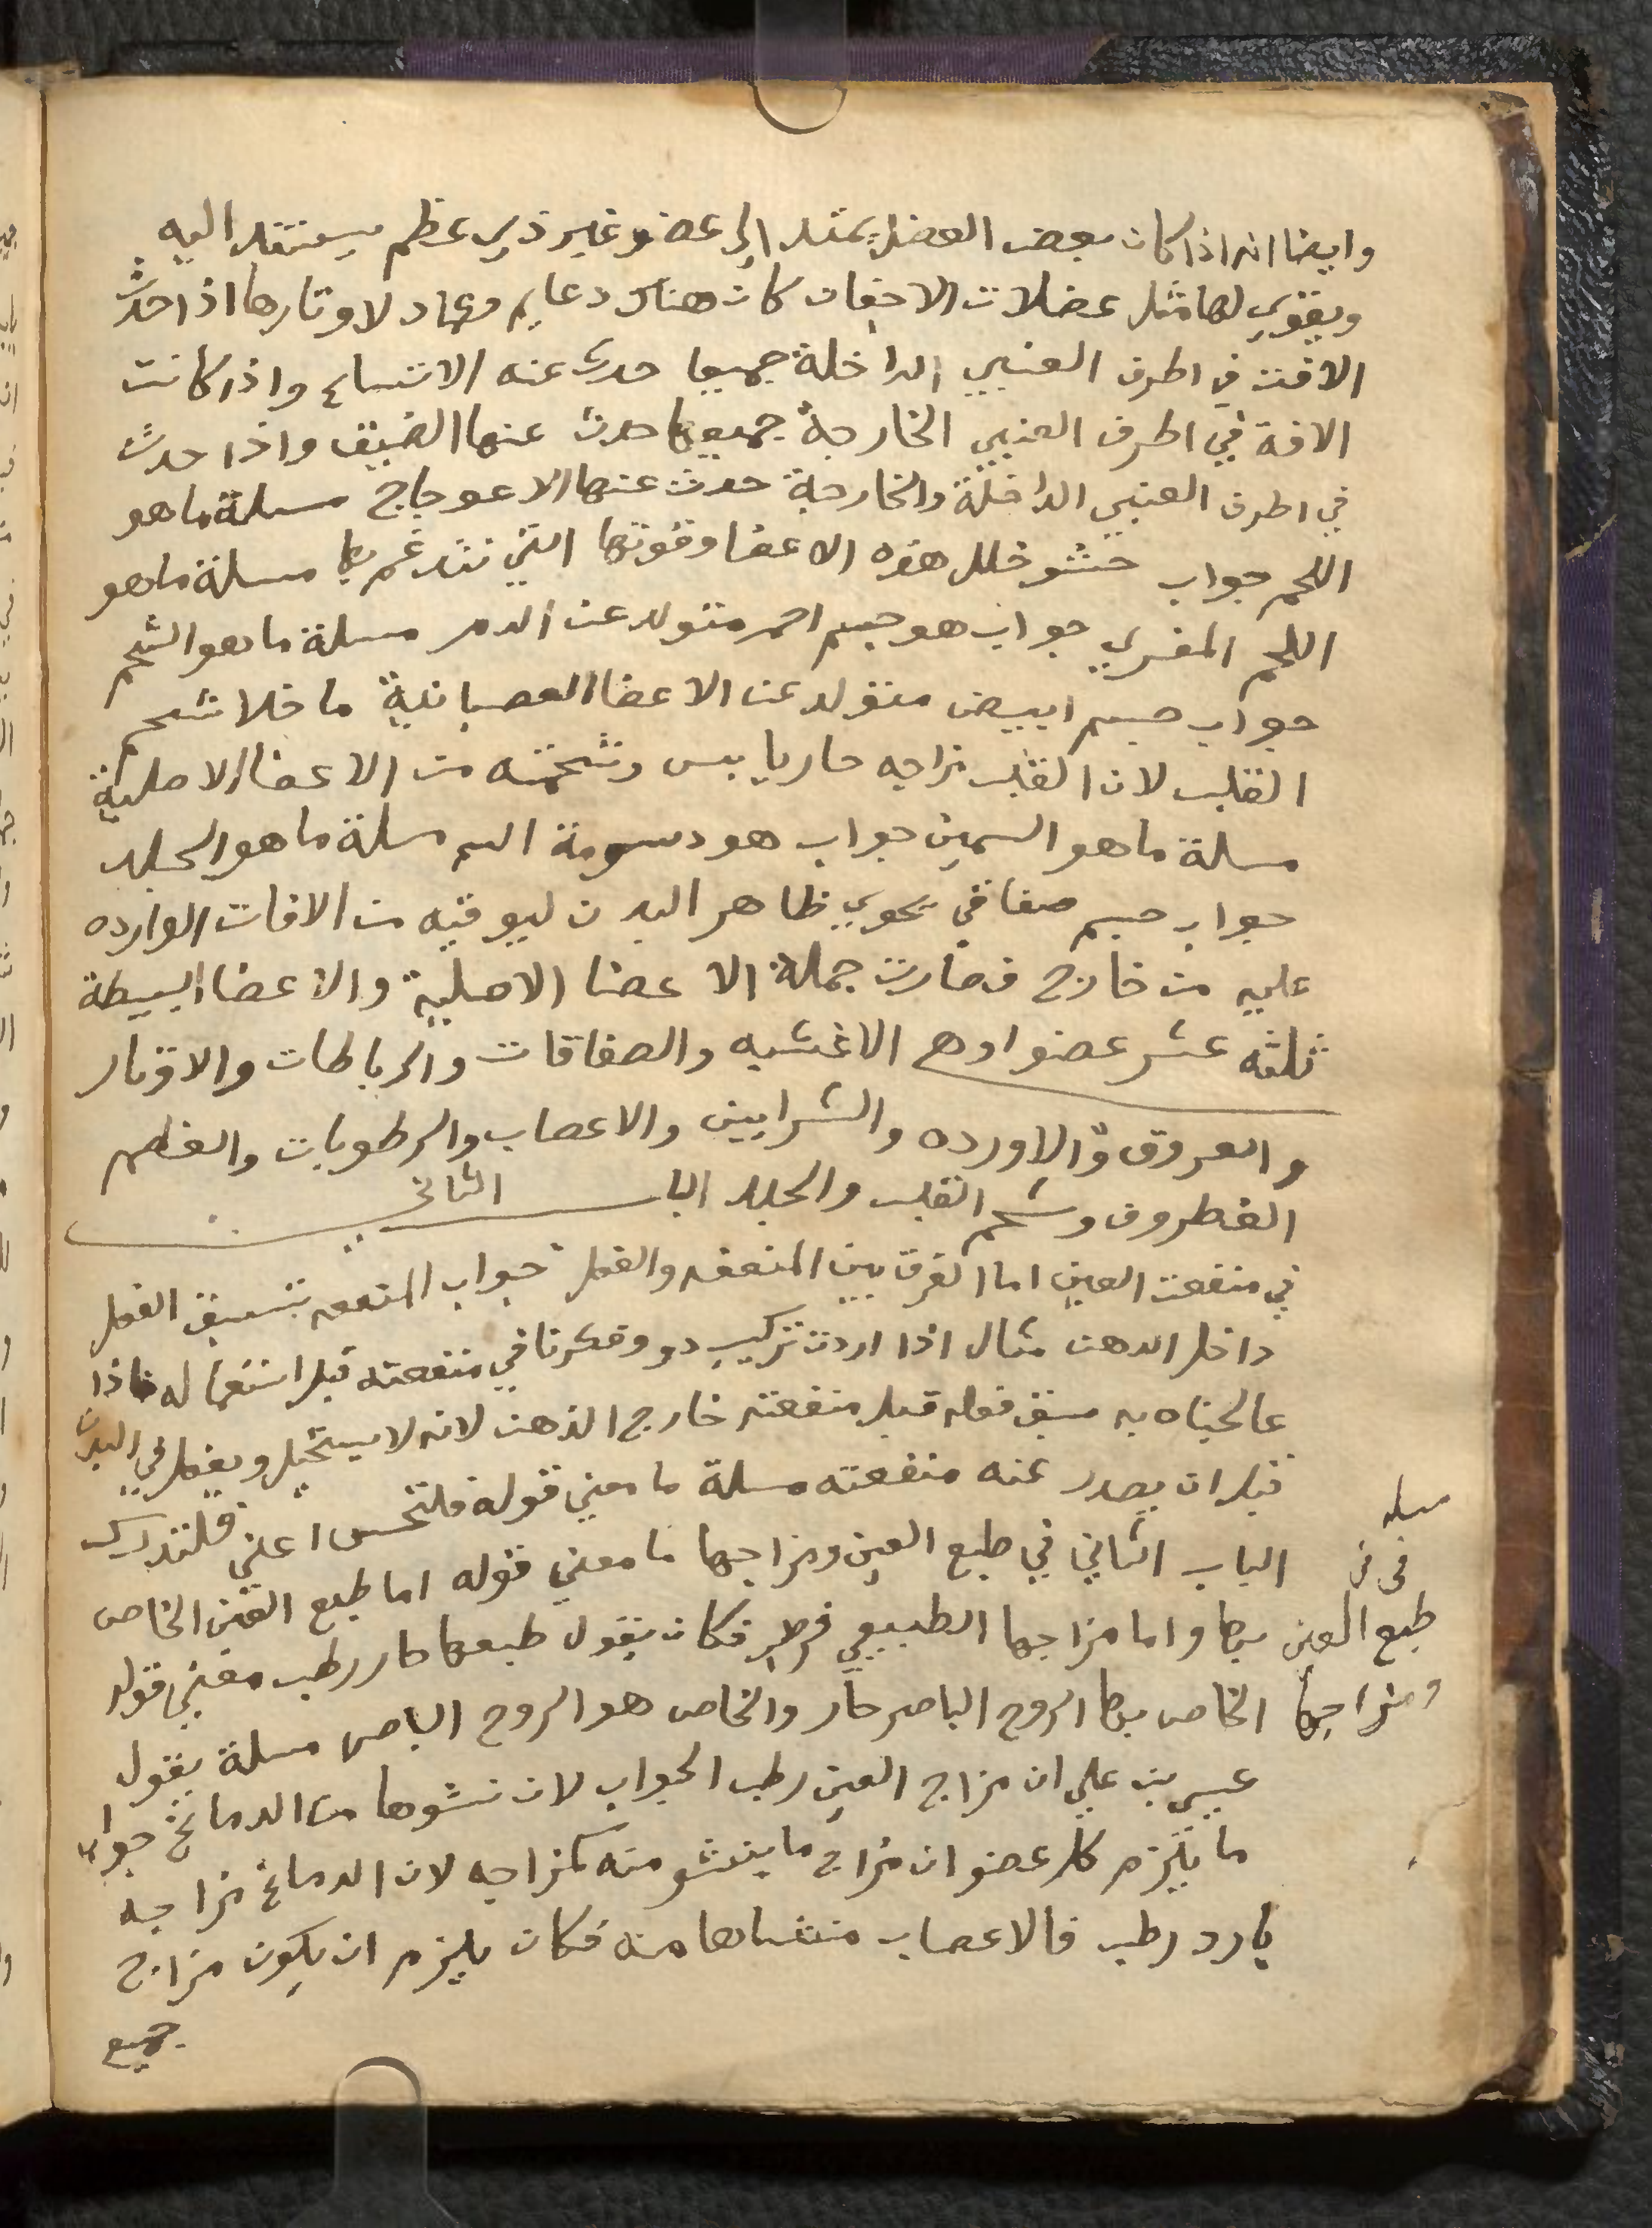 وايضا انه اذا كان بعض العضل يمتد الى عضو غير ذي عظم يستند اليه
ويقوي لها مثل عضلات الاجفان كان هناك دعايم وعماد لاوتارها اذا حدث
الافت في اطرف العنبي الداخلة جميعا حدث عنه الاتساع واذا كانت
الافة في اطرف العنبي الخارجة جميعها حدث عنها الضيق واذا حدث
في اطرف العنبي الداخلة والخارجة حدث عنها الاعوجاج مسلة ما هو
اللحم جواب حشو خلل هذه الاعضا وقوتها التي تندغم بها مسلة ما هو
اللحم المفردي جواب هو جسم احمر متولد عن الدم مسلة ما هو الشحم
جواب جسم ابيض متولد عن الاعضا العصبانية ما خلا شحم
القلب لان القلب مزاجه حار يابس وشحمته من الاعضا الاصلية
مسلة ما هو السمين جواب هو دسومة الدم مسلة ما هو الجلد
جواب جسم صفاقي يحوي ظاهر البدن ليوقيه من الافات الوارده
عليه من خارج فصارت جملة الاعضا الاصلية والاعضا البسيطة
ثلثه عشر عضوا وهي الاغشيه والصفاقات والرباطات والاوتار
والعروق والاورده والشرايين والاعصاب والرطوبات والعظم
الغطروف وشحم القلب والجلد الباب الثاني
في منفعت العين اما الفرق بين المنفعه والفعل جواب المنفعه تسبق الفعل
داخل الدهن مثال اذا اردت تركيب دو وفكرنا في منفعته قبل استعماله فاذا
عالجناه به سبق فعله قبل منفعته خارج الذهن لانه لا يستحيل ويفعل في البدن
قبل ان يصدر عنه منفعته مسلة ما معني قوله فلتحس اعني فلتدرك
مسله
الباب الثاني في طبع العين ومزاجها ما معني قوله اما طبع العين الخاص
في فرق
بها واما مزاجها الطبيعي فرطب فكان يقول طبعها حار رطب معني قوله
طبع العين
الخاص بها الروح الباصر حار والخاص هو الروح الباصر مسلة يقول
ومزاجها
عيسي بن علي ان مزاج العين رطب الجواب لان نشوها من الدماغ جواب
ما يلزم كل عضو ان مزاج ما ينشو منه كمزاجه لان الدماغ مزاجه
بارد رطب فالاعصاب منشاها منه فكان يلزم ان يكون مزاج
جميع